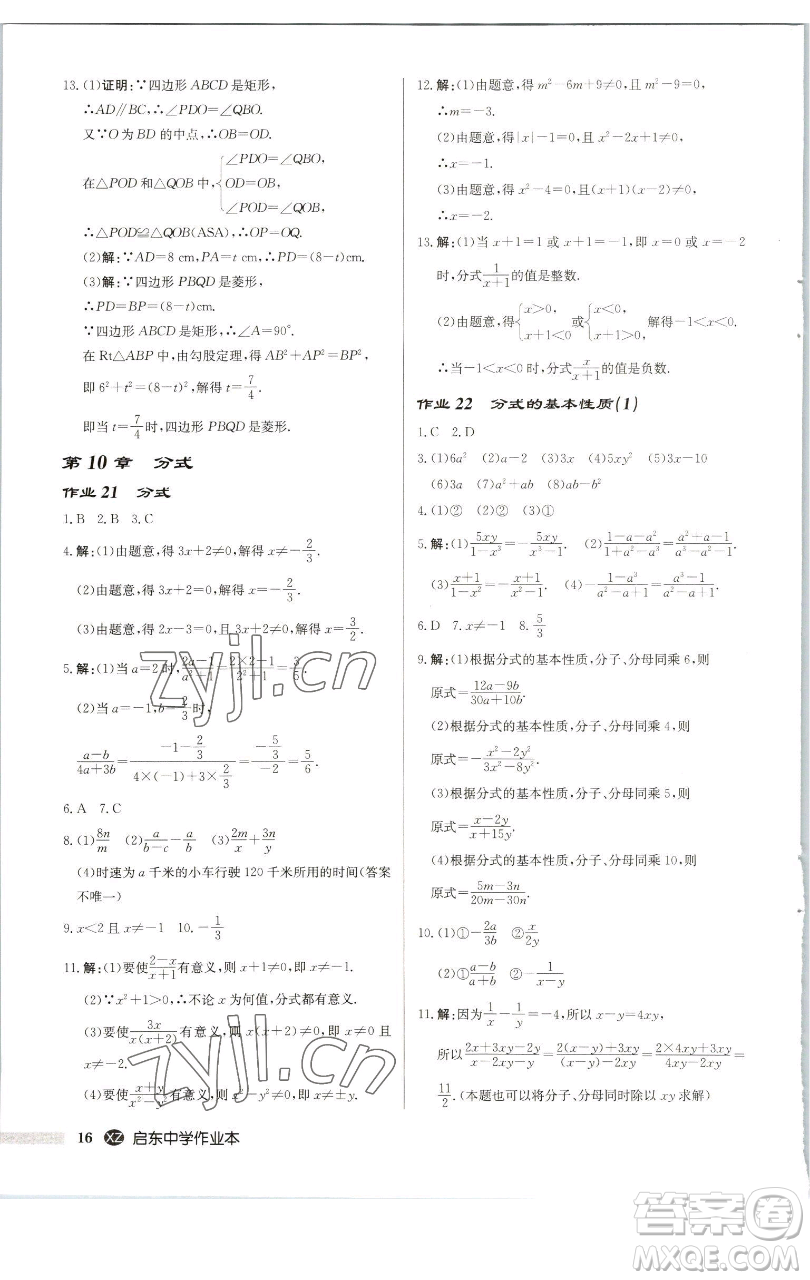 13. (1)证明:∵四边形 ABCD 是矩形,
∴AD∥BC,∴∠PDO=∠QBO.
又∵O 为 BD 的中点,∴OB=OD.
在△POD 和△QOB 中,{∠PDO=∠QBO,
OD=OB,
∠POD=∠QOB,
∴△POD≌△QOB(ASA),∴OP=OQ.
(2)解:∵AD=8 cm,PA=t cm,∴PD=(8-t)cm.
(3)解:∵四边形 PBQD 是菱形,
∴PD=BP=(8-t)cm.
∵四边形 ABCD 是矩形,∴∠A=90°.
在 Rt△ABP 中,由勾股定理,得 AB²+AP²=BP²,
即 6²+t²=(8-t)²,解得 t=7/4.
即当 t=7/4时,四边形 PBQD 是菱形.
第 10 章 分式
作业 21 分式
1. B 2. B 3. C
4. 解:(1)由题意,得 3x+2≠0,解得 x≠-2/3.
(2)由题意,得 3x+2=0,解得 x=-2/3.
(3)由题意,得 2x-3=0,解得 x=3/2.
5. 解:(1)当 a=2 时,(2a-1)/(a²+1)=(2×2-1)/(2²+1)=3/5.
(2)当 a=-1,b=2/3时,
(a-b)/(4a+3b)=(-1-2/3)/(4×(-1)+3×2/3)=(-5/3)/(-2)=5/6.
6. A 7. C
8. (1)8n/m (2)a/(b-c)-a/b (3)2m/x+3n/y
(4)时速为 a 千米的小车行驶 120 千米所用的时间(答案
不唯一)
9. x<2 且 x≠-1 10. -1/3
11. 解:(1)要使(2-x)/(x+1)有意义,则 x+1≠0,∴x≠-1.
(2)∵x²+1>0,∴不论 x 为何值,分式都有意义.
(3)要使3x/(x(x+2))有意义,则 x(x+2)≠0,∴x≠0 且
x≠-2.
(4)要使(x+y)/(x²-y²)有意义,则 x²-y²≠0,即 x≠±y.
16 XZ 启东中学作业本
12. 解:(1)由题意,得 m²-6m+9≠0,且 m²-9=0,
∴m=-3.
(2)由题意,得|x|-1=0,且 x²-2x+1≠0,
∴x=-1.
(3)由题意,得 x²-4=0,且(x+1)(x-2)≠0,
∴x=-2.
13. 解:(1)当 x+1=1 或 x+1=-1,即 x=0 或 x=-2
时,分式1/(x+1)的值是整数.
(2)由题意,得{x>0, x+1<0 或{x<0, x+1>0, 解得-1<x<0.
∴当-1<x<0 时,分式x/(x+1)的值是负数.
作业 22 分式的基本性质(1)
1. C 2. D
3. (1)6a² (2)a-2 (3)3x (4)x (5)x-10
(6)3a (7)a²+ab (8)ab-b²
4. (1)② (2)② (3)①
5. 解:(1)5xy/(1-x³)=-5xy/(x³-1). (2)(1-a-a²)/(1+a²-a³)=(a²+a-1)/(a³-a²-1).
(3)(x+1)/(1-x²)=-(x+1)/(x²-1). (4)-(1-a³)/(a²-a+1)=(a³-1)/(a²-a+1).
6. D 7. x≠-1 8. 5/3
9. 解:(1)根据分式的基本性质,分子、分母同乘 6,则
原式=(12a-9b)/(30a+10b).
(2)根据分式的基本性质,分子、分母同乘 4,则
原式=-(x²-2y²)/(3x²-8y²).
(3)根据分式的基本性质,分子、分母同乘 5,则
原式=(x-2y)/(x+15y).
(4)根据分式的基本性质,分子、分母同乘 10,则
原式=(5m-3n)/(20m-30n).
10. (1)①-2a/3b ②x/2y
(2)①(a-b)/(a+b) ②-1/(x-y)
11. 解:因为1/x-1/y=-4,所以 x-y=4xy,
所以(2x+3xy-2y)/(x-2xy-y)=(2(x-y)+3xy)/((x-y)-2xy)=(2×4xy+3xy)/(4xy-2xy)=
11/2.(本题也可以同时除以 xy 求解)
zyjl.cn
zyjl.cn
答案圈
MXQE.COM